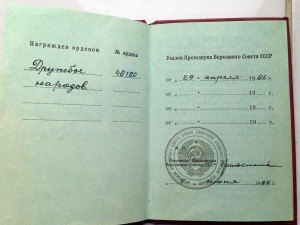 Награжден орденом
№ ордена
Дружбы
народов
46100
Указом Президиума Верховного Совета СССР
от „29“ апреля 1986 г.
от „ “ 19 г.
от „ “ 19 г.
от „ “ 19 г.
Секретарь Президиума
Верховного Совета СССР